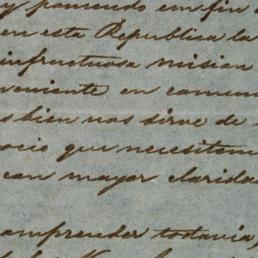 y poniendo em fin
en esta Republica la
infructuosa mision
veniente en comun
s bien nos sirve de
ocio que necesitem
can mayor claridad
omprender todavia,